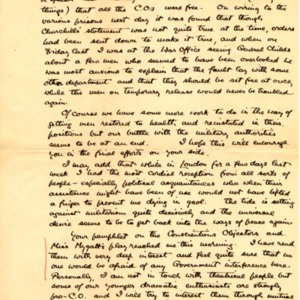 things) that all the C.Os were free. On wiring to the
various prisons next day it was found that though
Churchill's statement was not quite true at the time, orders
had been sent down to make it true, and when on
Friday last I was at the War Office seeing General Childs
about a few men who seemed to have been overlooked he
was most anxious to explain that the fault lay with some
other department and that should be set free at once,
while the men on temporary release would never be troubled
again.
Of course we have some more work to do in the way of
getting men restored to health, and reinstated in their
positions but our battle with the military authorities
seems to be at an end. I hope this will encourage
you in the final efforts on your side.
I may add that while in London for a few days last
week I had the most cordial reception from all sorts of
people - especially political acquaintances who when their
assistance might have been of use would not have lifted
a finger to prevent me dying in gaol. The tide is setting
against militarism quite decisively, and the universal
desire seems to be to get back into the ways of peace again.
Your pamphlet on the Conscientious Objectors and
Miss Mygatt's play reached me this morning. I have read
them with very deep interest and feel quite sure that no
one would be afraid of any Government interference here.
Personally, I am not in touch with theatrical people but
some of our younger dramatic enthusiasts are strongly
pro-C.O. and I will try to interest them through mutual